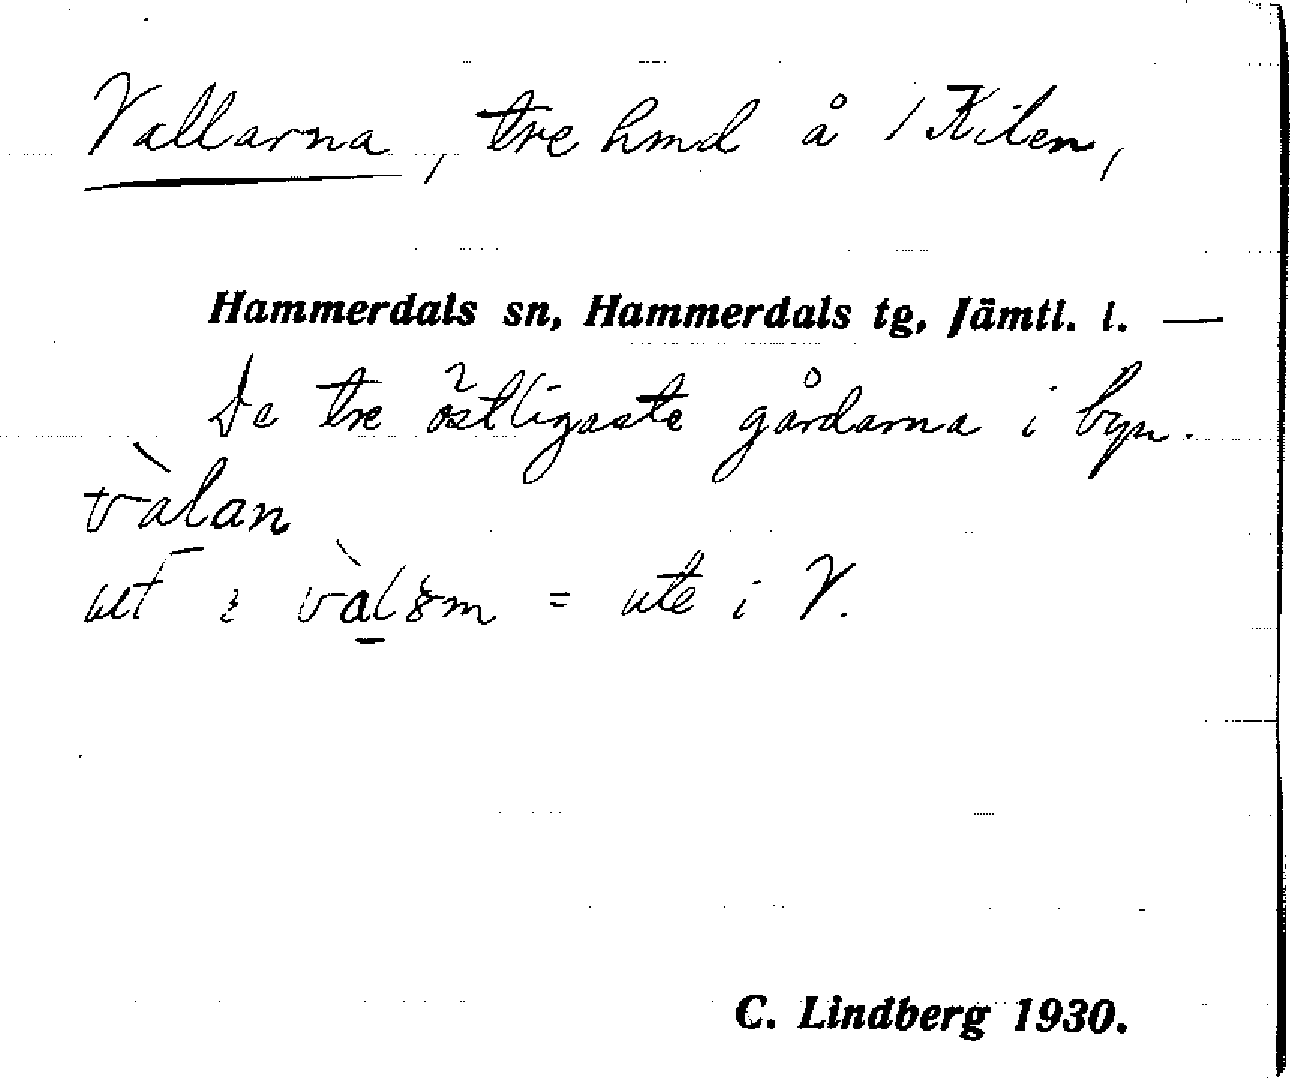 Vallarna, tre hmd å /Kilen,
Hammerdals sn, Hammerdals tg, Jämtl. l. —
De tre östligaste gårdarna i byn.
vàlan
ut i vàlom = ute i V.
C. Lindberg 1930.